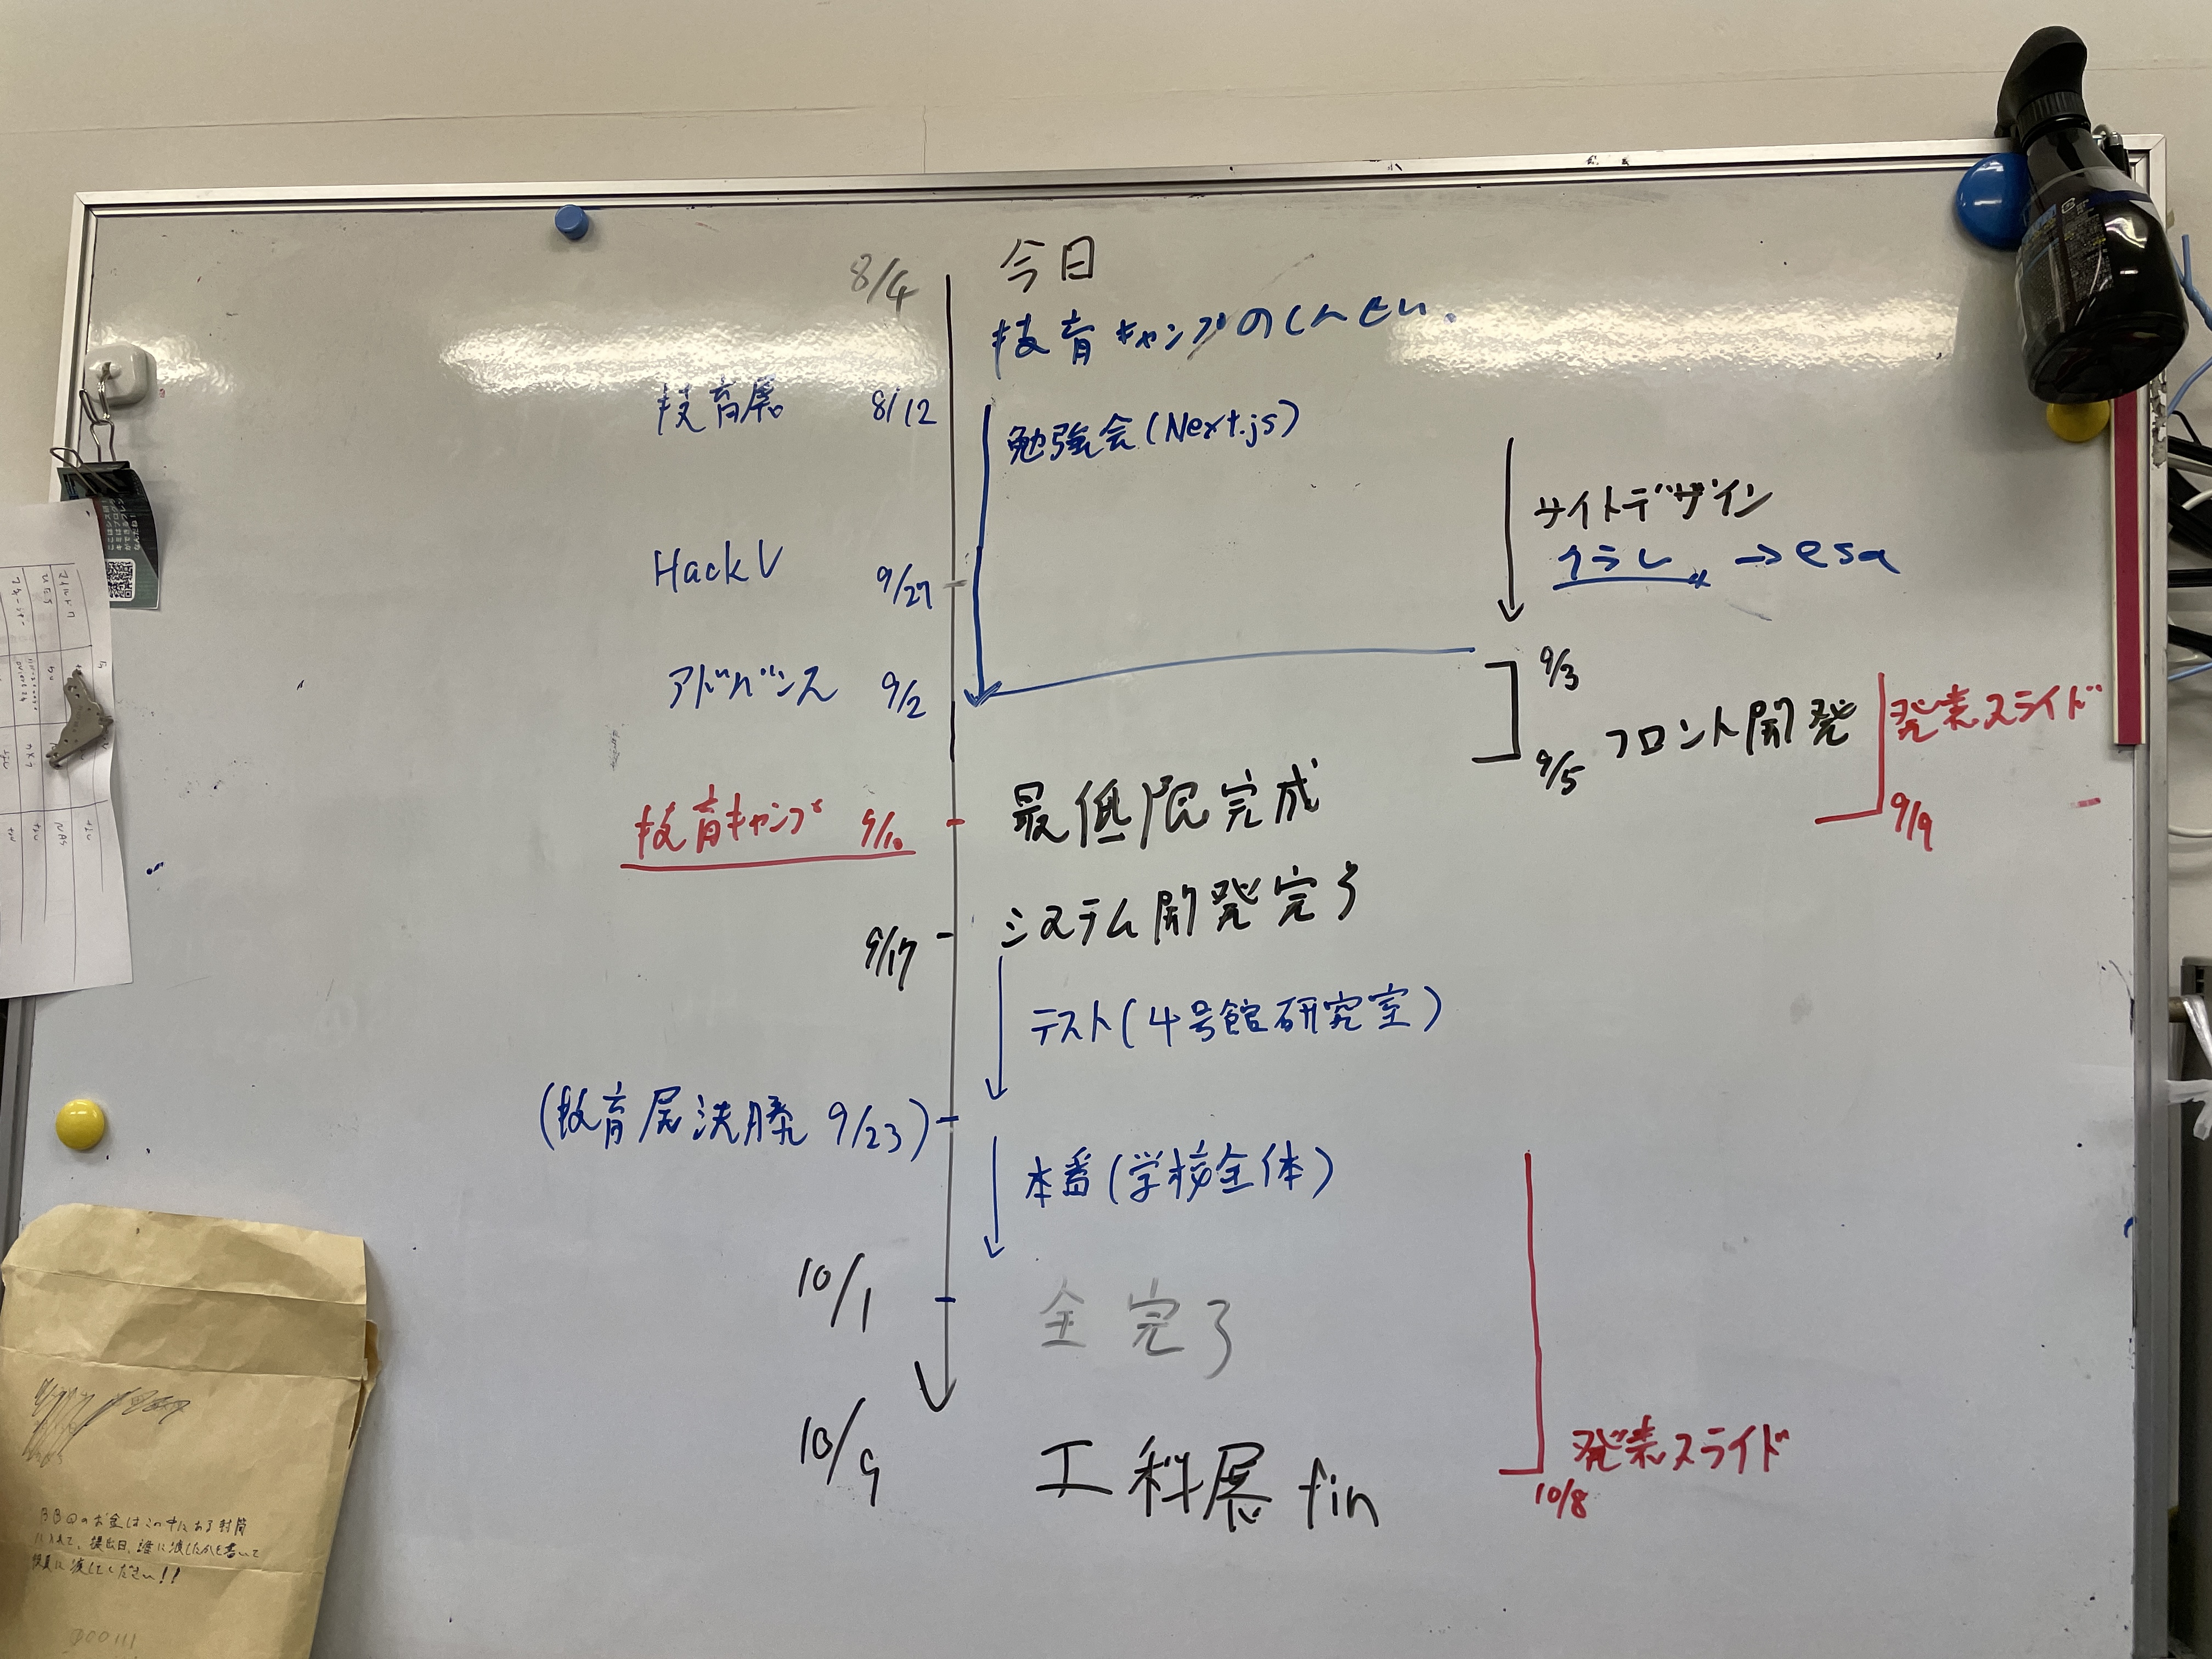 8/4 今日
技育キャンプのしんせい
技育展 8/12
勉強会(Next.js)
サイトデザイン
→esa
HackV 9/27
アドバンス 9/2
9/3
フロント開発
9/5
発表スライド
9/9
技育キャンプ 9/10
最低限完成
9/17 システム開発完了
テスト(4号館研究室)
(技育展決勝 9/23)
本番(学校全体)
10/1 全完了
10/9 工科展 fin
発表スライド
10/8
BBQのお金はこの中にある封筒
に入れて、提出日、誰に渡したかを書いて
役員に渡してください!!